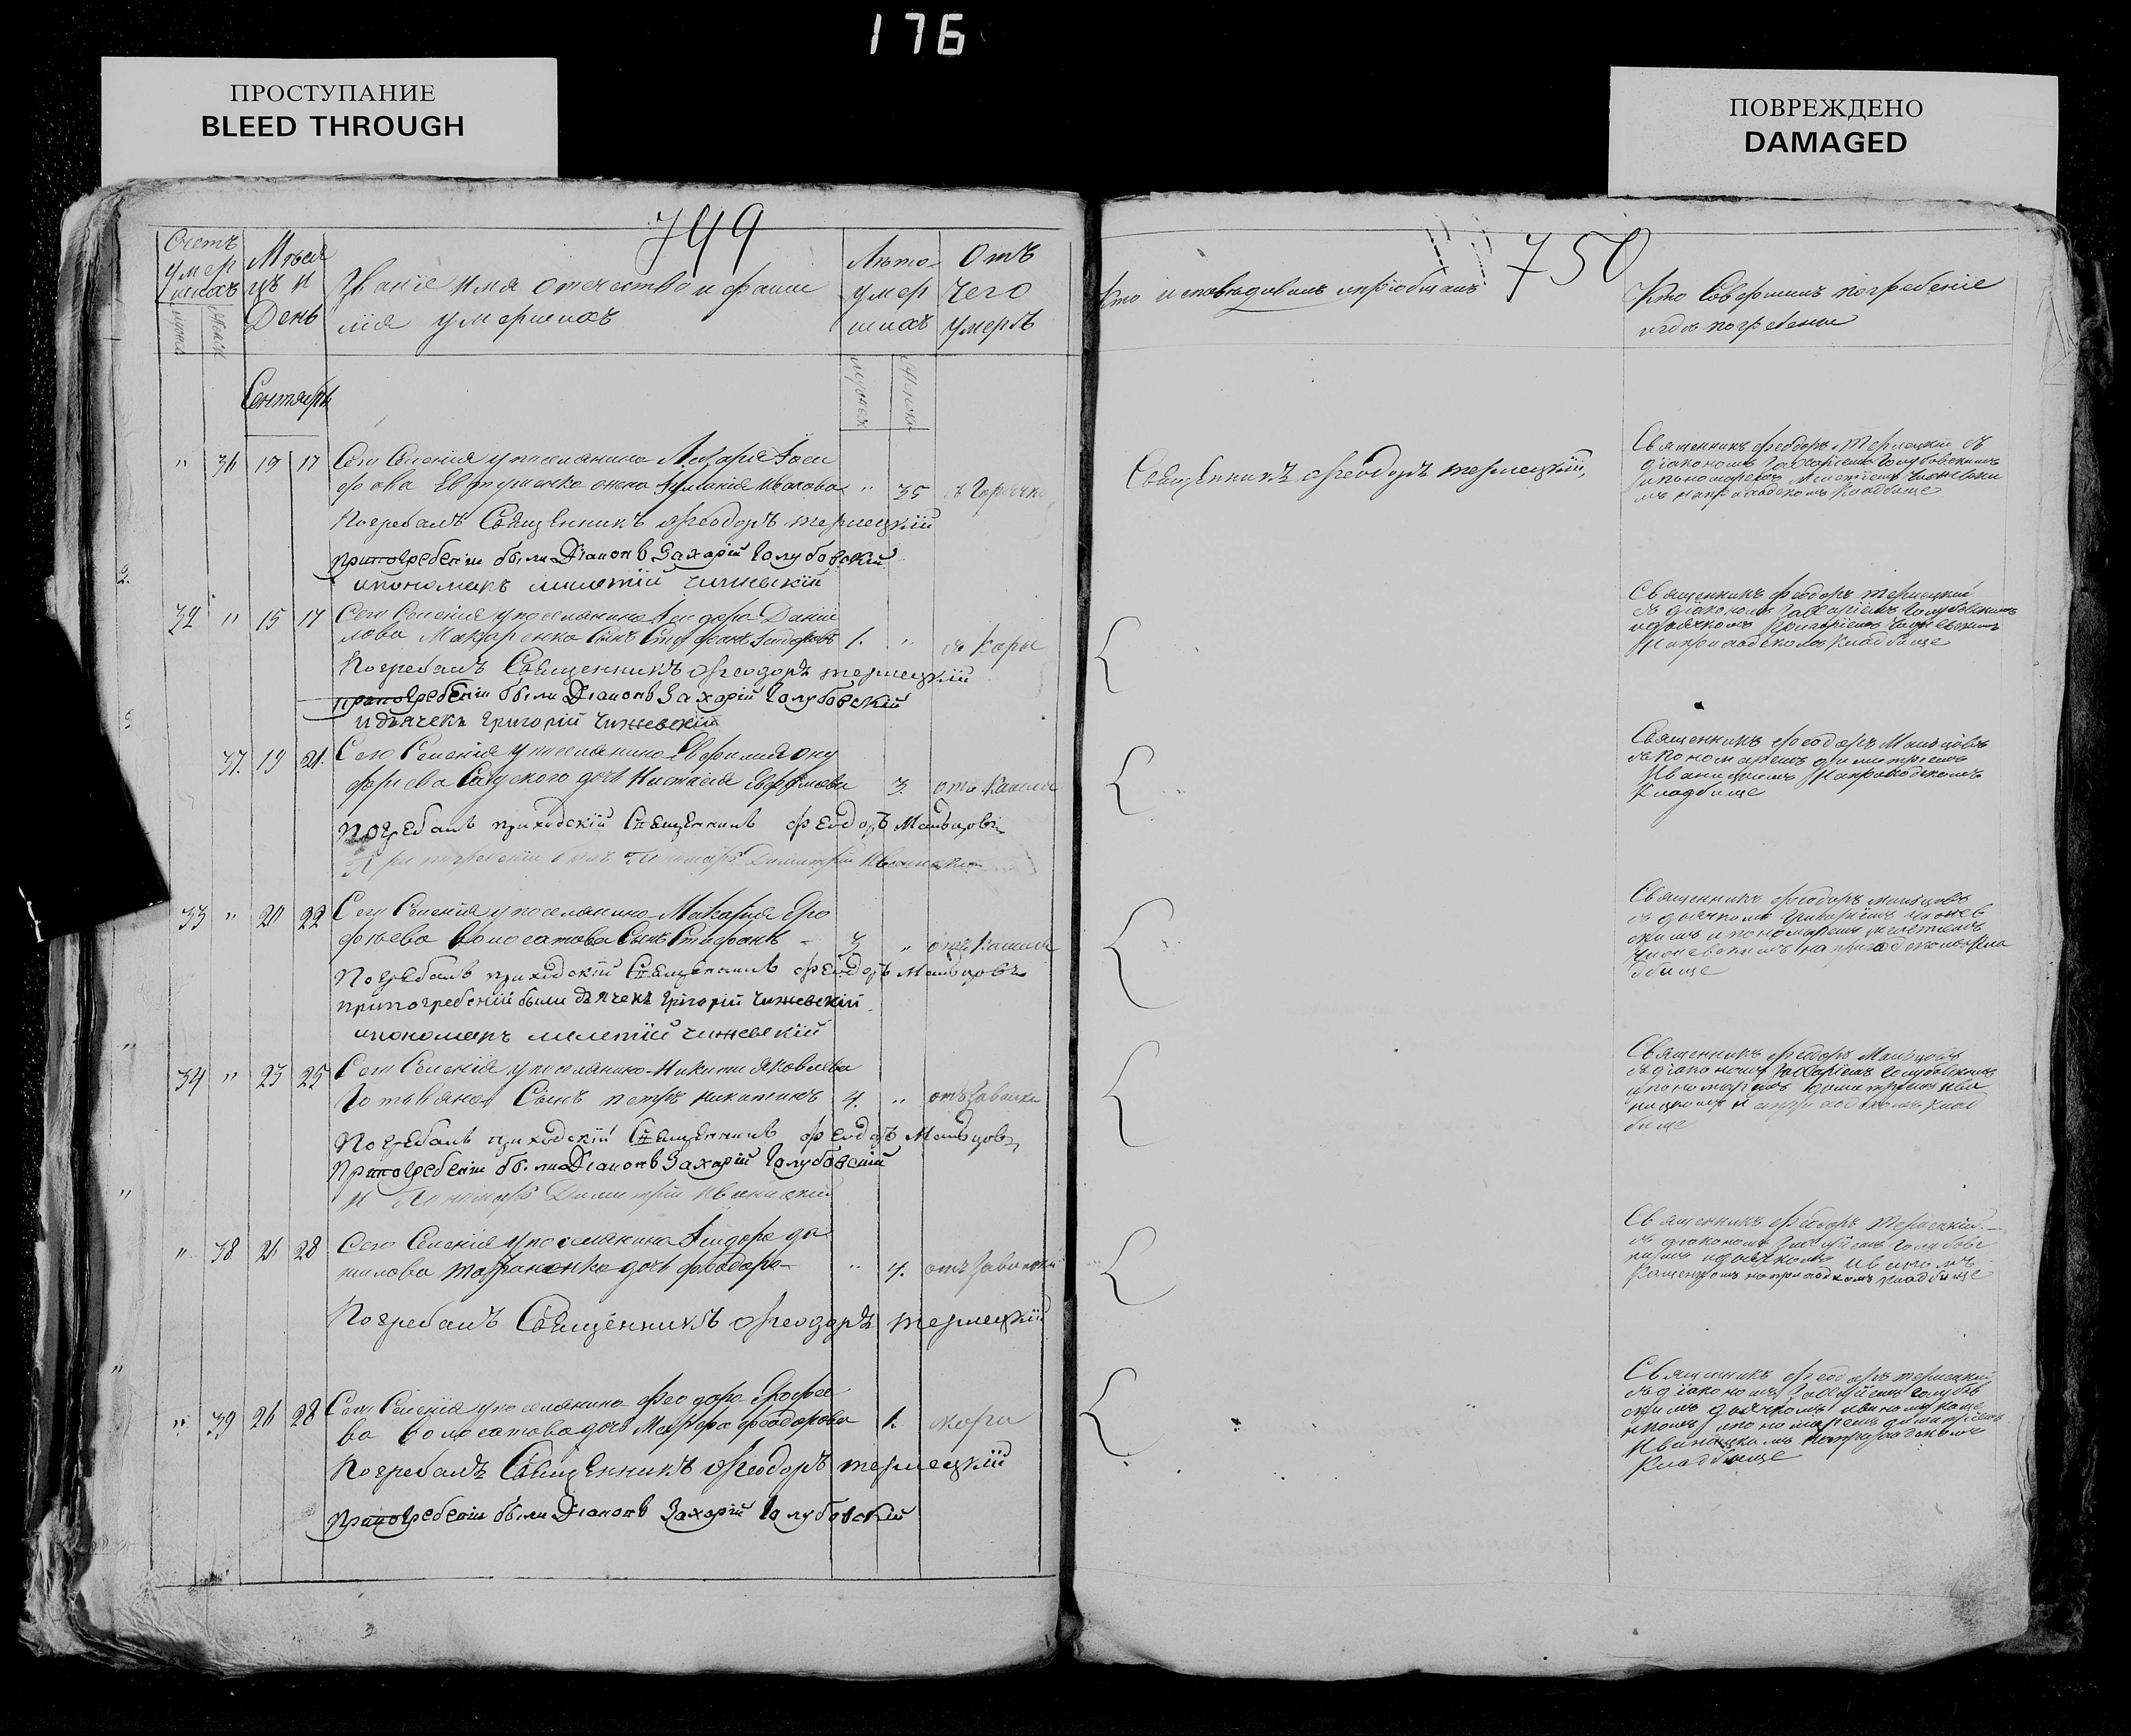 176
ПРОСТУПАНИЕ
BLEED THROUGH
ПОВРЕЖДЕНО
DAMAGED
749
Счетъ умершихъ
Мѣсяцъ и День
Званіе имя отечество и фамилія умершихъ
Лѣто умершихъ
Отъ чего умеръ
Сентябрь
" 36 19 17 Сего Селенія у поселянина
жена " 35 съ Горячки
Погребалъ Священникъ Ѳеодоръ Терлецкій
при погребеніи были Діаконъ Захарій Голубовскій
и пономарь Милетій Чижевскій
32 " 15 17 Сего Селенія у поселянина Даніи
лова Макаренка Сынъ 1. " съ Кори
Погребалъ Священникъ Ѳеодоръ Терлецкій
при погребеніи были Діаконъ Захарій Голубовскій
и дьячекъ Григорій Чижевскій
37. 19 21. Сего Селенія у поселянина Ону
фріева дочь 3. отъ Кашля
Погребалъ приходскій Священникъ Ѳеодоръ Мальцовъ
При погребеніи былъ Пономарь Димитрій Иваницкій
33 " 20 22 Сего Селенія у поселянина Макарія Еро
фѣева Волосатова Сынъ Стефанъ 3 " отъ Кашля
Погребалъ приходскій Священникъ Ѳеодоръ Мальцовъ
при погребеніи были дьячекъ Григорій Чижевскій
и пономарь Милетій Чижевскій
34 " 23 25 Сего Селенія у поселянина Никиты Яковлева
Сынъ Петръ Никитинъ 4. " отъ Завалки
Погребалъ приходскій Священникъ Ѳеодоръ Мальцовъ
При погребеніи были Діаконъ Захарій Голубовскій
и Пономарь Димитрій Иваницкій
" 38 26 28 Сего Селенія у поселянина да
нилова дочь Ѳеодора " 4. отъ Завалки
Погребалъ Священникъ Ѳеодоръ Терлецкій
" 39 26 28 Сего Селенія у поселянина Ѳеодора Ерофее
ва Волосатова дочь Ѳеодорова 1. кори
Погребалъ Священникъ Ѳеодоръ Терлецкій
при погребеніи были Діаконъ Захарій Голубовскій
750
Кто исповѣдывалъ и пріобщалъ
Кто Совершилъ погребеніе
и гдѣ погребены
Священникъ Ѳеодоръ Терлецкій
Священникъ Ѳеодоръ Терлецкій съ
діакономъ Захаріемъ Голубовскимъ
и пономаремъ Милетіемъ Чижевски
мъ на приходскомъ Кладбище
Священникъ Ѳеодоръ Терлецкій
съ діакономъ Захаріемъ Голубовскимъ
и дьячкомъ Григоріемъ Чижевскимъ
на приходскомъ Кладбище
Священникъ Ѳеодоръ Мальцовъ
съ пономаремъ Димитріемъ
Иваницкимъ На приходскомъ
Кладбище
Священникъ Ѳеодоръ Мальцовъ
съ дьячкомъ Григоріемъ Чижев
скимъ и пономаремъ Милетіемъ
Чижевскимъ на приходскомъ Кла
дбище
Священникъ Ѳеодоръ Мальцовъ
съ діакономъ Захаріемъ Голубовскимъ
и пономаремъ Димитріемъ Ива
ницкимъ на приходскомъ Клад
бище
Священникъ Ѳеодоръ Терлецкій
съ діакономъ Захаріемъ Голубовс
кимъ и дьячкомъ Иваномъ
на приходскомъ Кладбище
Священникъ Ѳеодоръ Терлецкій
съ діакономъ Захаріемъ Голубов
скимъ дьячкомъ Иваномъ
и пономаремъ Димитріемъ
Иваницкимъ на приходскомъ
Кладбище